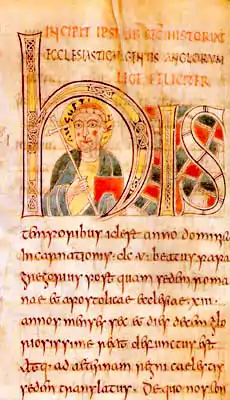 INCIPIT IPSIUS HISTORIAE
ECCLESIASTICAE GENTIS ANGLORUM
FELICITER
hIS
temporibus id est anno dominicae
Incarnationis dc.v. beatus papa
gregorius post quam sedem roma
nae et apostolicae ecclesiae .xiii.
annos menses sex et dies decem glo
riosissime rexit defunctus est
Atque ad aeternam regni caelestis
sedem translatus. De quo nos con